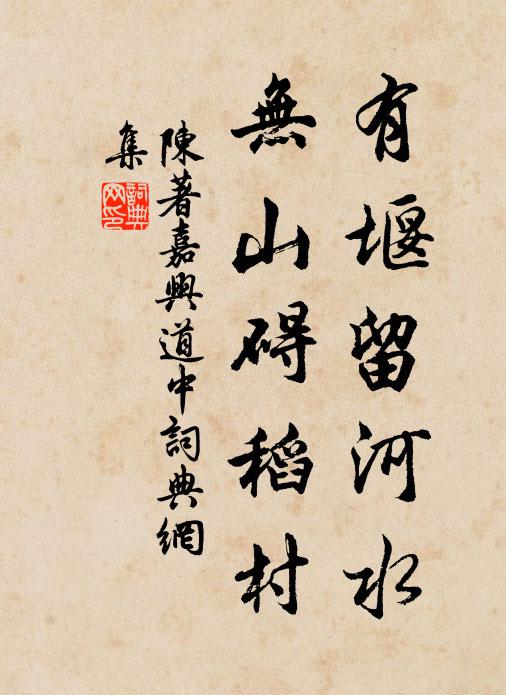 有堰留河水
無山碍稻村
陳著嘉興道中詞典網
集
詞典网印